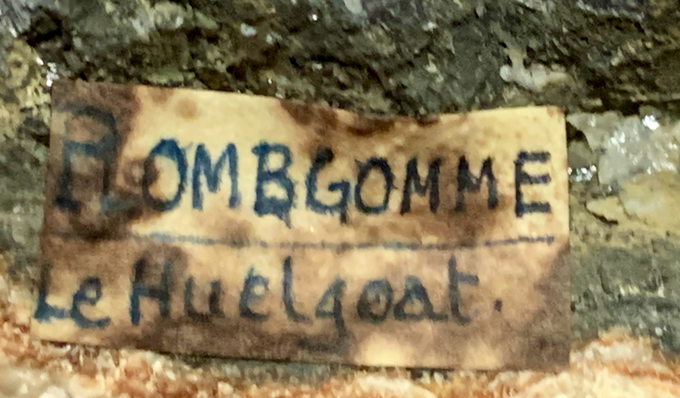 PLOMBGOMME
Le Huelgoat.